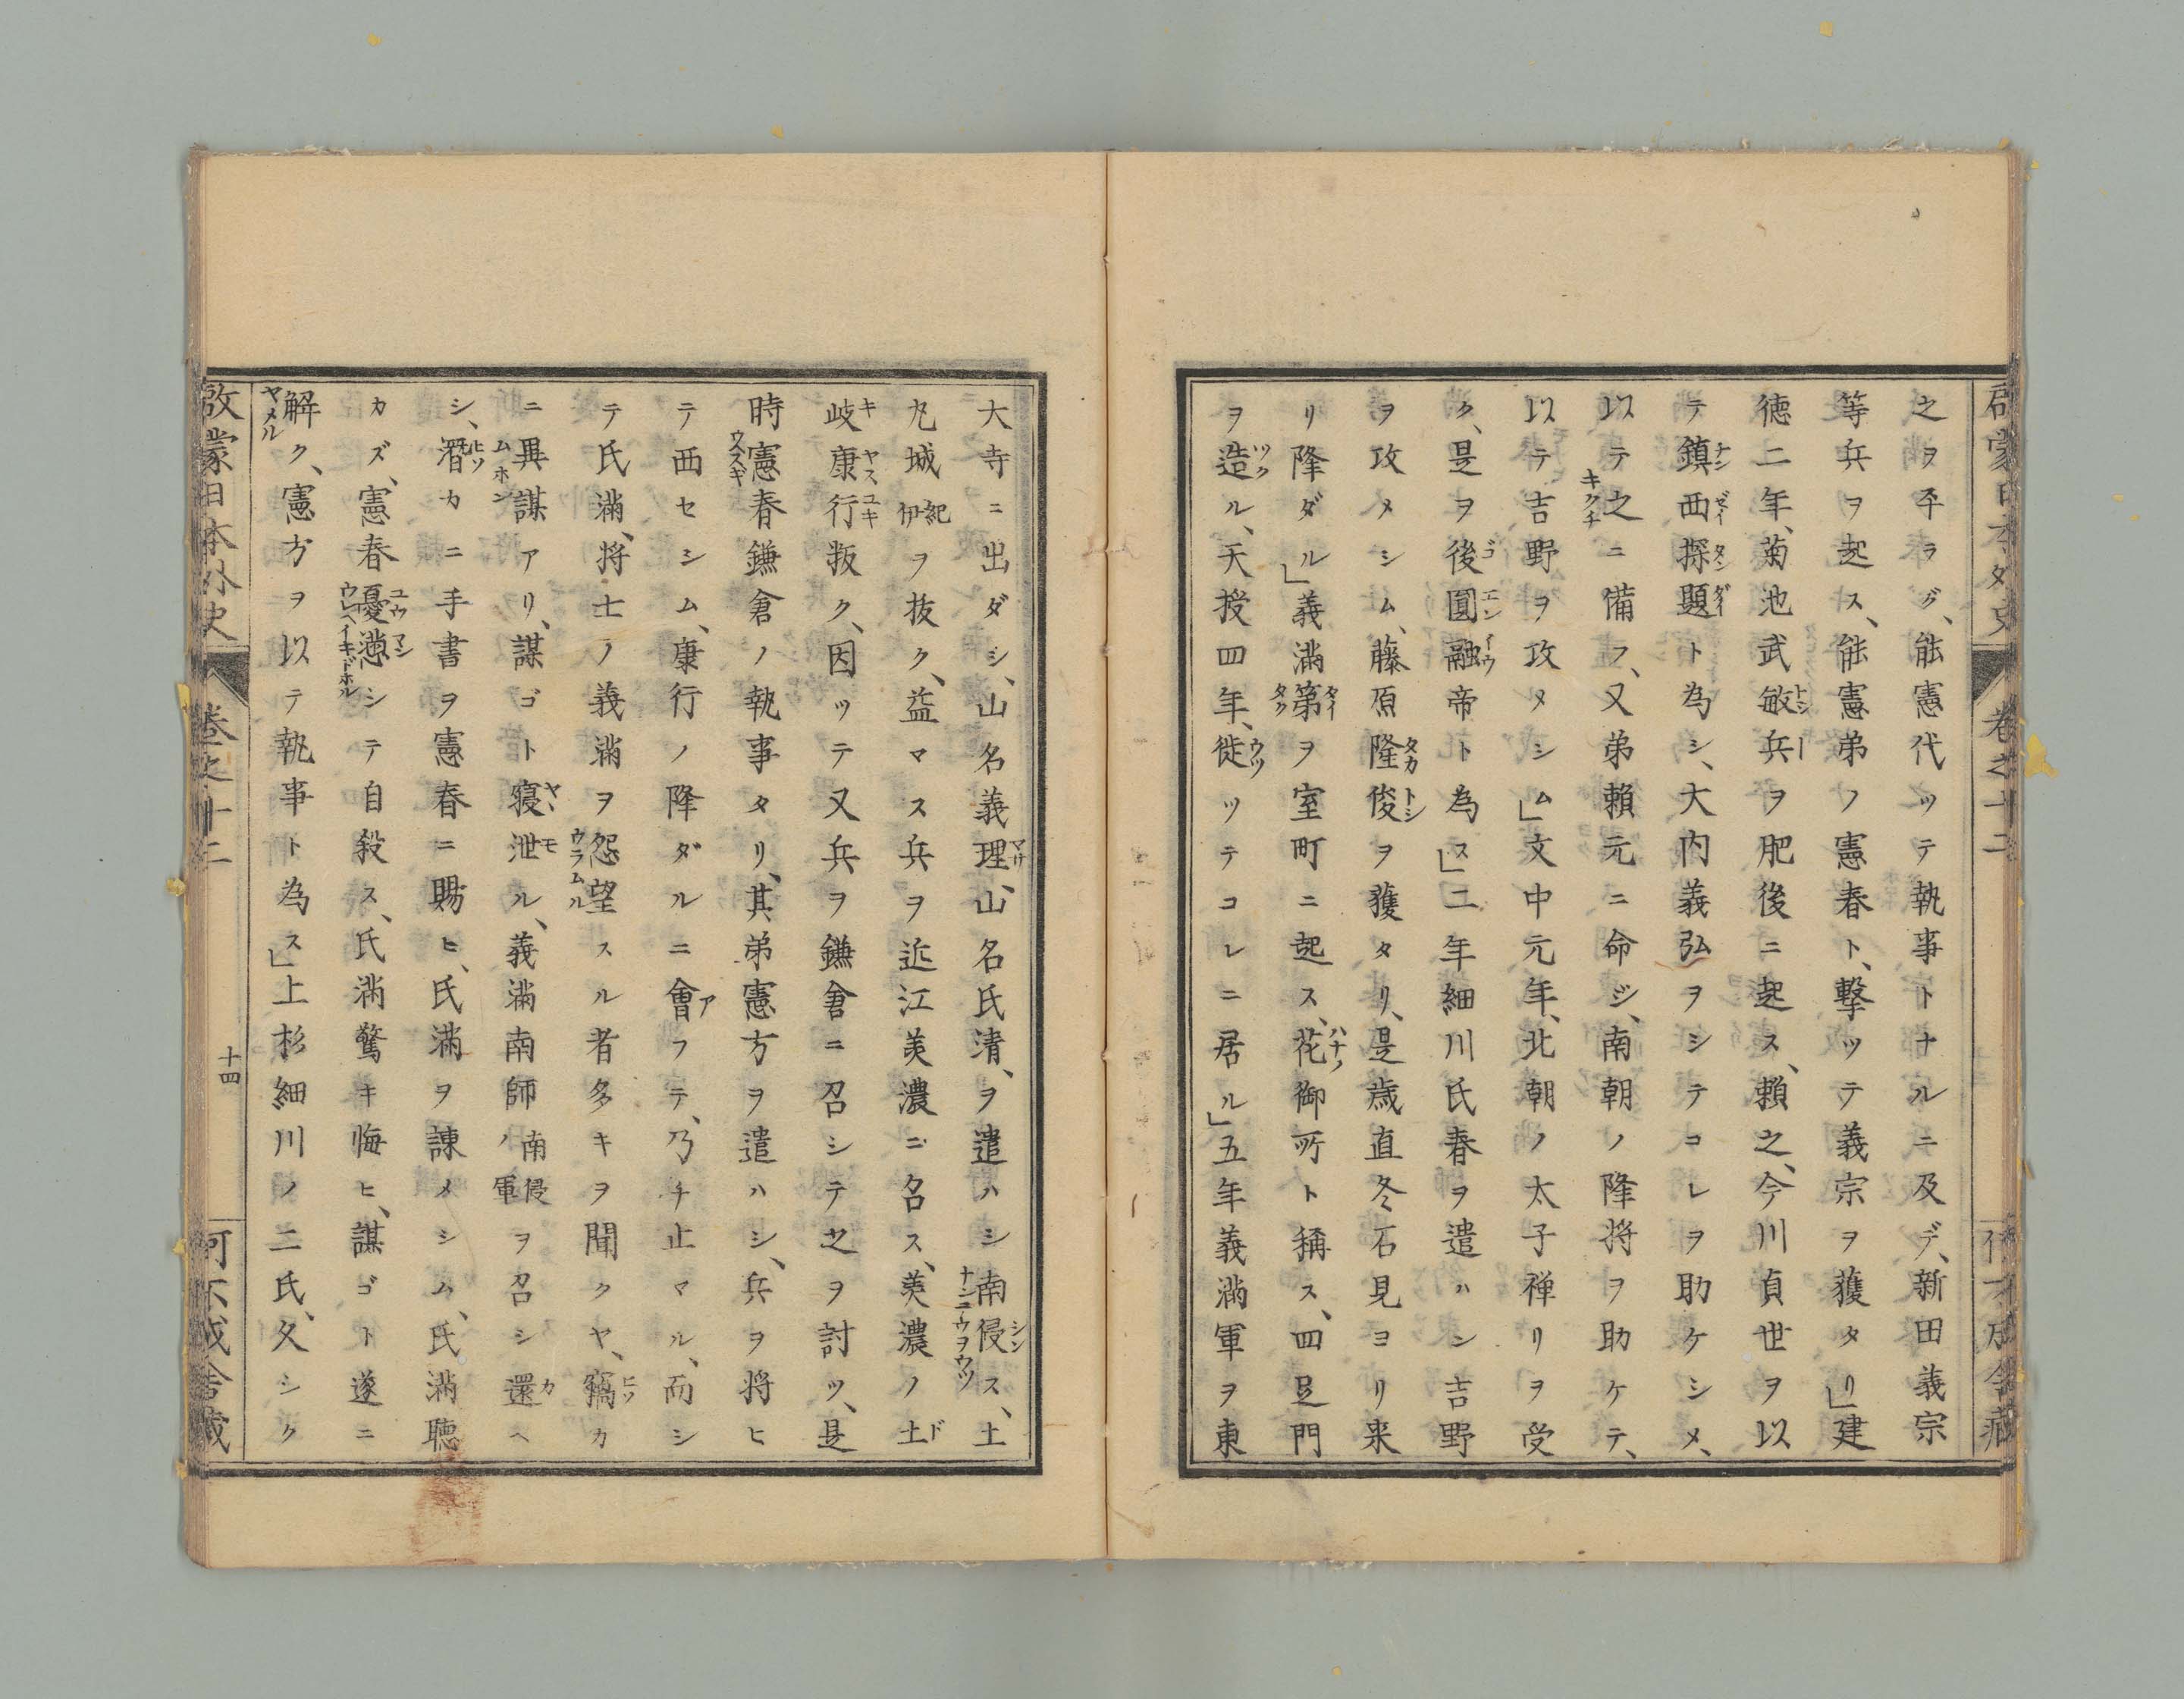 之ヲ平ラグ、能憲代ツテ執事トナルニ及デ、新田義宗
等兵ヲ起ス、能憲弟ノ憲春ト、撃ツテ義宗ヲ獲タリ」建
徳二年、菊池武敏兵ヲ肥後ニ起ス、頼之、今川貞世ヲ以
テ鎮西探題ト為シ、大内義弘ヲシテコレヲ助ケシメ、
以テ之ニ備フ、又弟頼元ニ命ジ、南朝ノ降将ヲ助ケテ、
以テ吉野ヲ攻メシム」文中元年、北朝ノ太子禅リヲ受
ク、是ヲ後圓融帝ト為ス」二年細川氏春ヲ遣ハシ吉野
ヲ攻メシム、藤原隆俊ヲ獲タリ、是歳直冬石見ヨリ来
リ降ダル」義満第ヲ室町ニ起ス、花御所ト稱ス、四足門
ヲ造ル、天授四年、徙ツテコレニ居ル」五年義満軍ヲ東
大寺ニ出ダシ、山名義理、山名氏清、ヲ遣ハシ南侵ス、土
丸城紀伊ヲ抜ク、益マス兵ヲ近江美濃ニ召ス、美濃ノ土
岐康行叛ク、因ツテ又兵ヲ鎌倉ニ召シテ之ヲ討ツ、是
時憲春鎌倉ノ執事タリ、其弟憲方ヲ遣ハシ、兵ヲ将ヒ
テ西セシム、康行ノ降ダルニ會フテ、乃チ止マル、而シ
テ氏満、将士ノ義満ヲ怨望スル者多キヲ聞クヤ、竊カ
ニ異謀アリ、謀ゴト寝泄ル、義満南師南侵ノ軍ヲ召シ還ヘ
シ、潜カニ手書ヲ憲春ニ賜ヒ、氏満ヲ諌メシム、氏満聴
カズ、憲春憂懣シテ自殺ス、氏満驚キ悔ヒ、謀ゴト遂ニ
解ク、憲方ヲ以テ執事ト為ス」上杉細川ノ二氏、久シク
啟蒙日本外史
卷之十二
十四